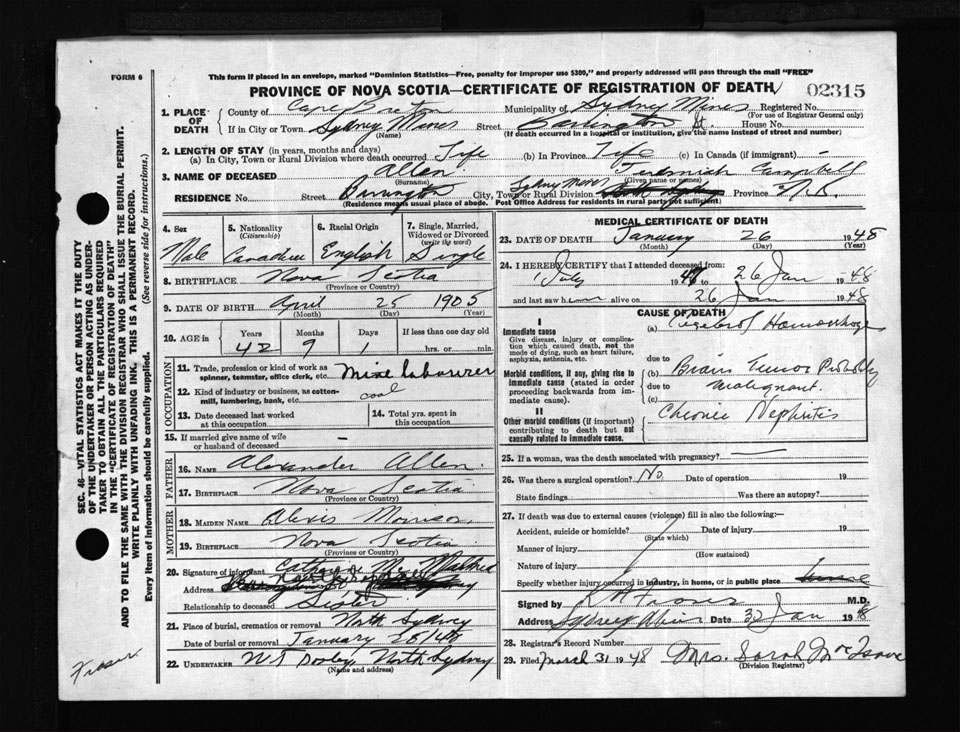 FORM 6
This form if placed in an envelope, marked "Dominion Statistics—Free, penalty for improper use $300," and properly addressed will pass through the mail "FREE"
PROVINCE OF NOVA SCOTIA—CERTIFICATE OF REGISTRATION OF DEATH
02315
1. PLACE OF DEATH
County of Cape Breton Municipality of Sydney Mines Registered No.
(For use of Registrar General only)
If in City or Town Sydney Mines Street St. House No.
(Name) (If death occurred in a hospital or institution, give the name instead of street and number)
2. LENGTH OF STAY (in years, months and days)
(a) In City, Town or Rural Division where death occurred Life (b) In Province Life (c) In Canada (if immigrant) —
3. NAME OF DECEASED Allen Jeremiah Campbell
(Surname) (Given name or names)
RESIDENCE No. Street Barrington City, Town or Rural Division Sydney Mines Province N.S.
(Residence means usual place of abode. Post Office Address for residents in rural parts not sufficient)
4. Sex Male
5. Nationality (Citizenship) Canadian
6. Racial Origin English
7. Single, Married, Widowed or Divorced (write the word) Single
8. BIRTHPLACE Nova Scotia
(Province or Country)
9. DATE OF BIRTH April 25 1905
(Month) (Day) (Year)
10. AGE in Years Months Days If less than one day old
42 9 1 hrs. or min.
OCCUPATION
11. Trade, profession or kind of work as spinner, teamster, office clerk, etc. Mine labourer
12. Kind of industry or business, as cotton-mill, lumbering, bank, etc. coal
13. Date deceased last worked at this occupation
14. Total yrs. spent in this occupation
15. If married give name of wife or husband of deceased —
FATHER
16. NAME Alexander Allen
17. BIRTHPLACE Nova Scotia
(Province or Country)
MOTHER
18. MAIDEN NAME Alexis Morrison
19. BIRTHPLACE Nova Scotia
(Province or Country)
20. Signature of informant Catherine
Address
Relationship to deceased Sister
21. Place of burial, cremation or removal North Sydney
Date of burial or removal January 28/48
22. UNDERTAKER W J Dooley North Sydney
(Name and address)
MEDICAL CERTIFICATE OF DEATH
23. DATE OF DEATH January 26 1948
(Month) (Day) (Year)
24. I HEREBY CERTIFY that I attended deceased from:
1 July 1947 to 26 Jan 1948
and last saw him alive on 26 Jan 1948
CAUSE OF DEATH
I
Immediate cause
Give disease, injury or complication which caused death, not the mode of dying, such as heart failure, asphyxia, asthenia, etc.
(a) Cerebral Hemorrhage
due to
Morbid conditions, if any, giving rise to immediate cause (stated in order proceeding backwards from immediate cause).
(b) Brain Tumor Probably
due to malignant.
(c)
II
Other morbid conditions (if important) contributing to death but not causally related to immediate cause.
Chronic Nephritis
25. If a woman, was the death associated with pregnancy? —
26. Was there a surgical operation? No Date of operation 19
State findings Was there an autopsy?
27. If death was due to external causes (violence) fill in also the following:—
Accident, suicide or homicide? Date of injury 19
(State which)
Manner of injury
(How sustained)
Nature of injury
Specify whether injury occurred in industry, in home, or in public place
Signed by M.D.
Address Sydney Mines Date Jan 1948
28. Registrar's Record Number
29. Filed March 31 1948 Mrs. Sarah
(Division Registrar)
SEC. 46—VITAL STATISTICS ACT MAKES IT THE DUTY OF THE UNDERTAKER OR PERSON ACTING AS UNDERTAKER TO OBTAIN ALL THE PARTICULARS REQUIRED IN THE "CERTIFICATE OF REGISTRATION OF DEATH" AND TO FILE THE SAME WITH THE DIVISION REGISTRAR WHO SHALL ISSUE THE BURIAL PERMIT.
WRITE PLAINLY WITH UNFADING INK. THIS IS A PERMANENT RECORD.
Every item of information should be carefully supplied. (See reverse side for instructions.)
Fraser.